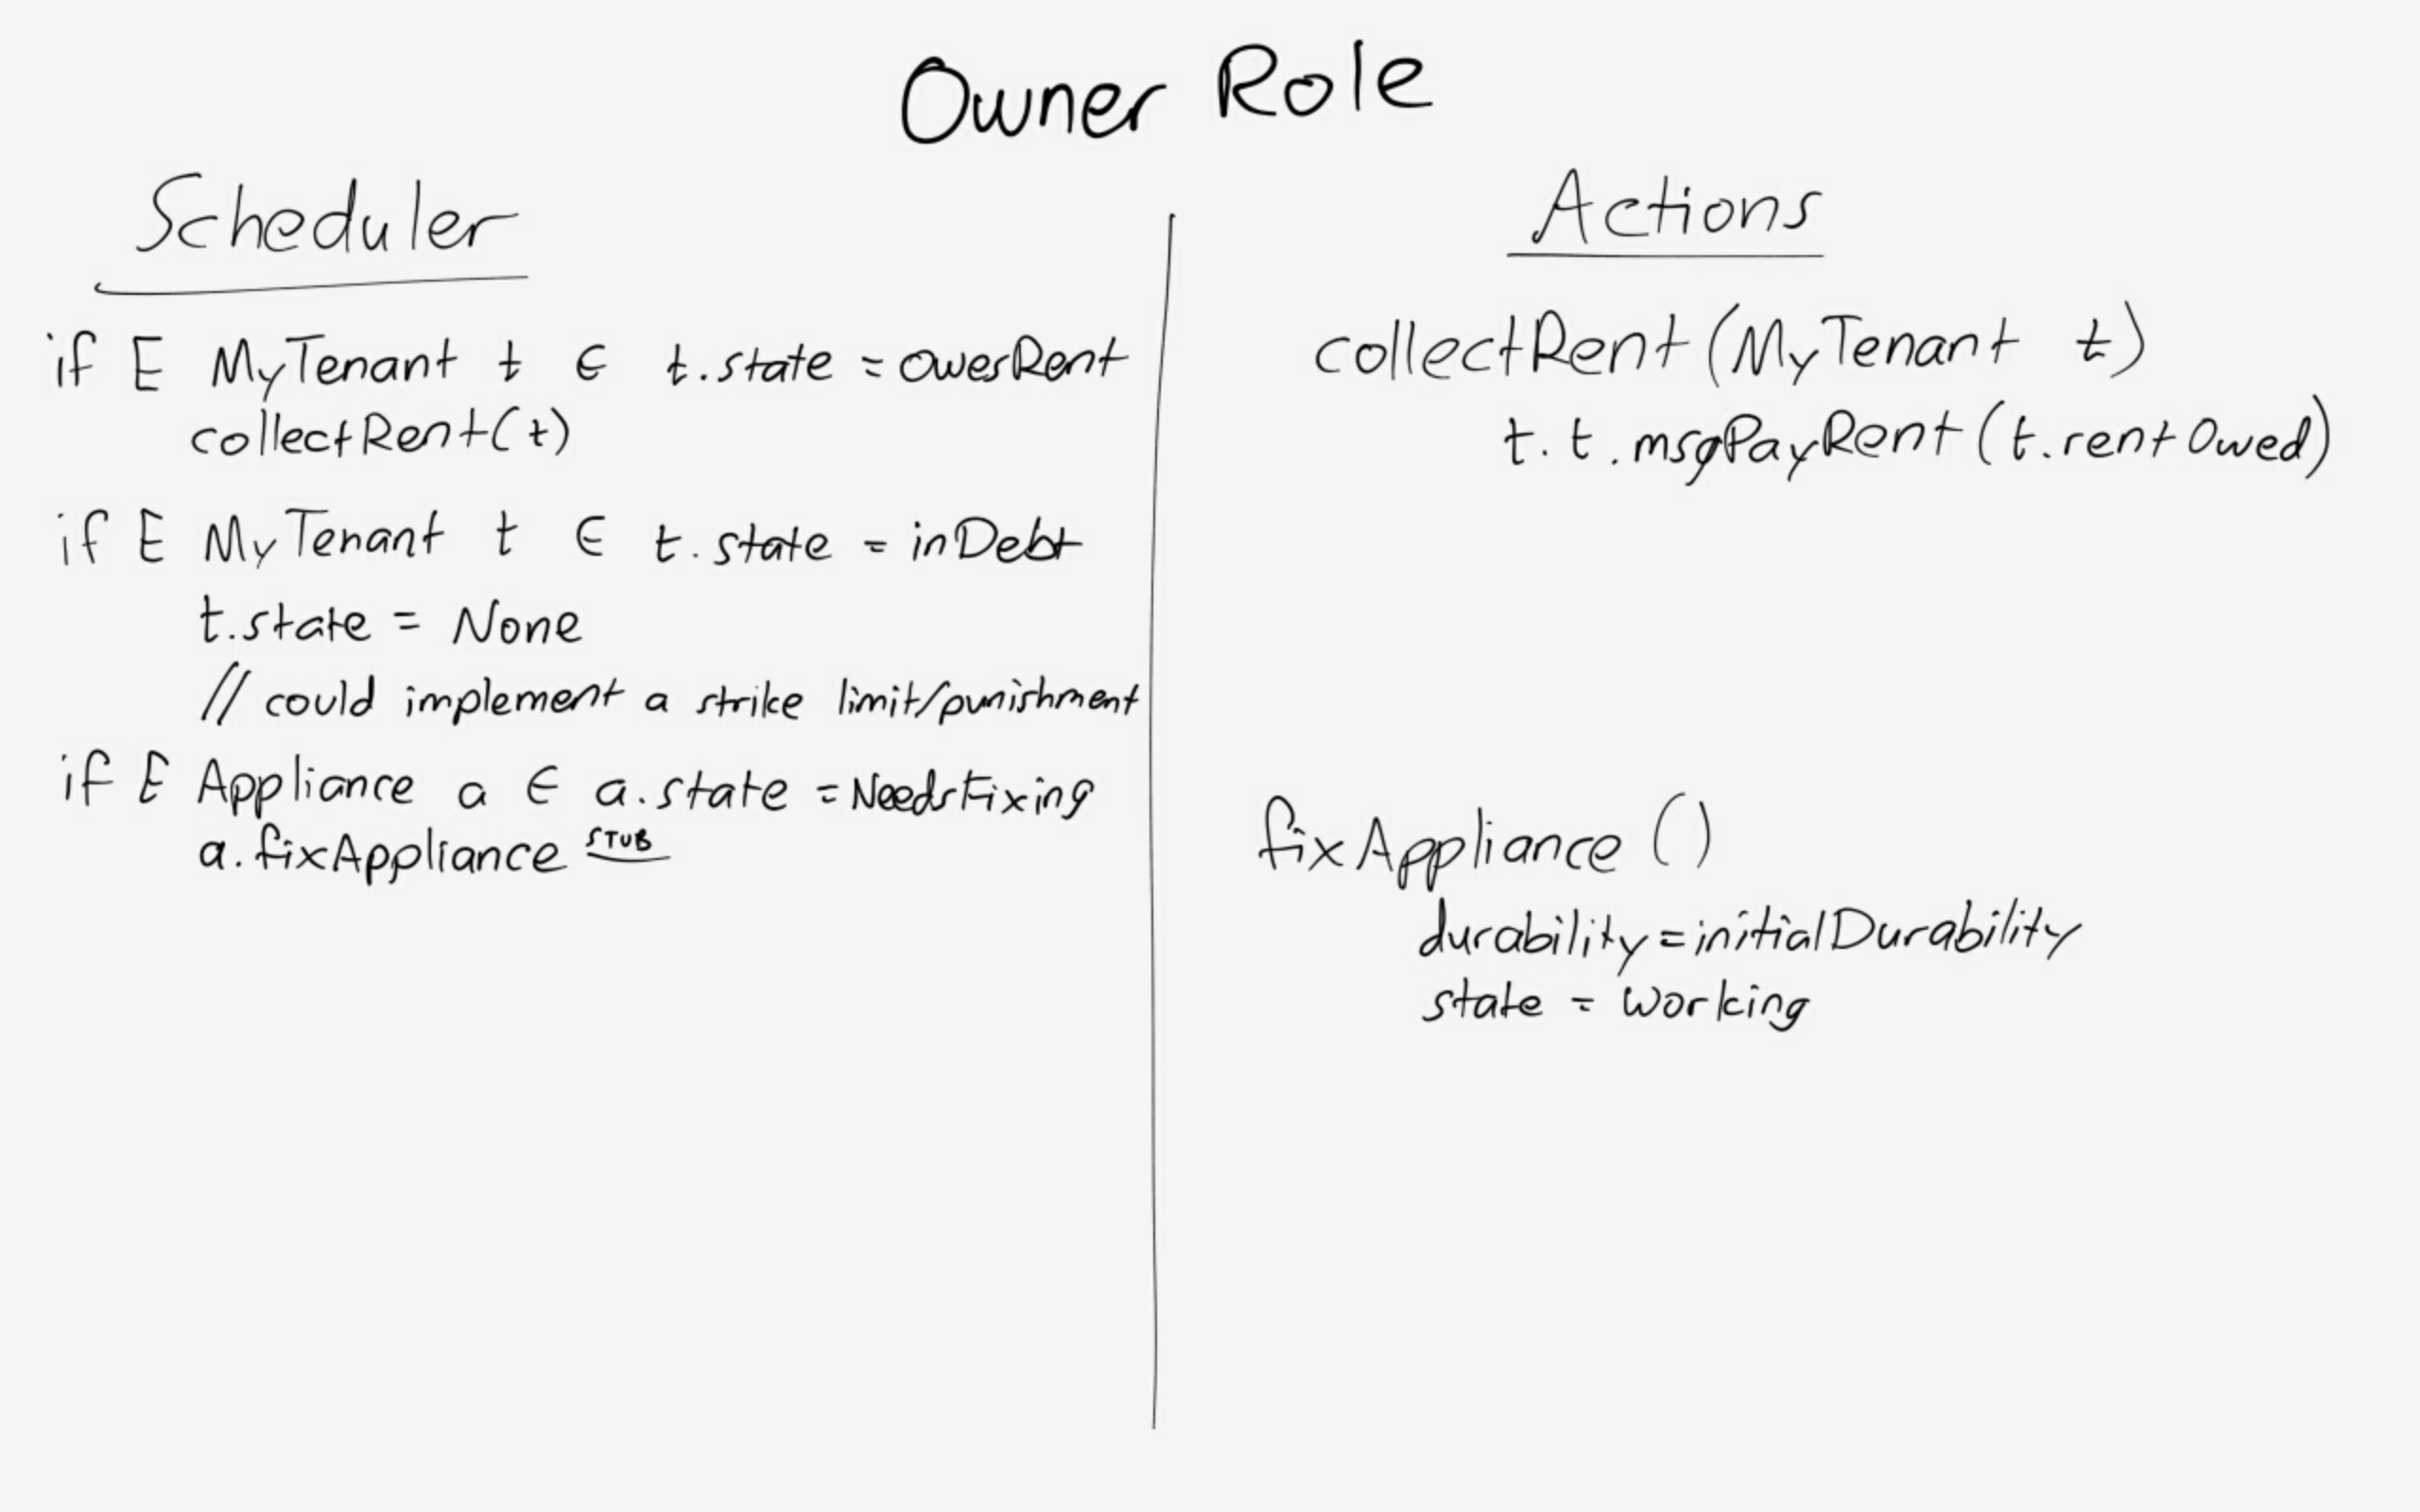 Owner Role
Scheduler
if E MyTenant t ∈ t.state = owesRent
collectRent(t)
if E MyTenant t ∈ t.state = inDebt
t.state = None
// could implement a strike limit/punishment
if E Appliance a ∈ a.state = NeedsFixing
a.fixAppliance STUB
Actions
collectRent(MyTenant t)
t.t.msgPayRent(t.rentOwed)
fixAppliance()
durability = initialDurability
state = working